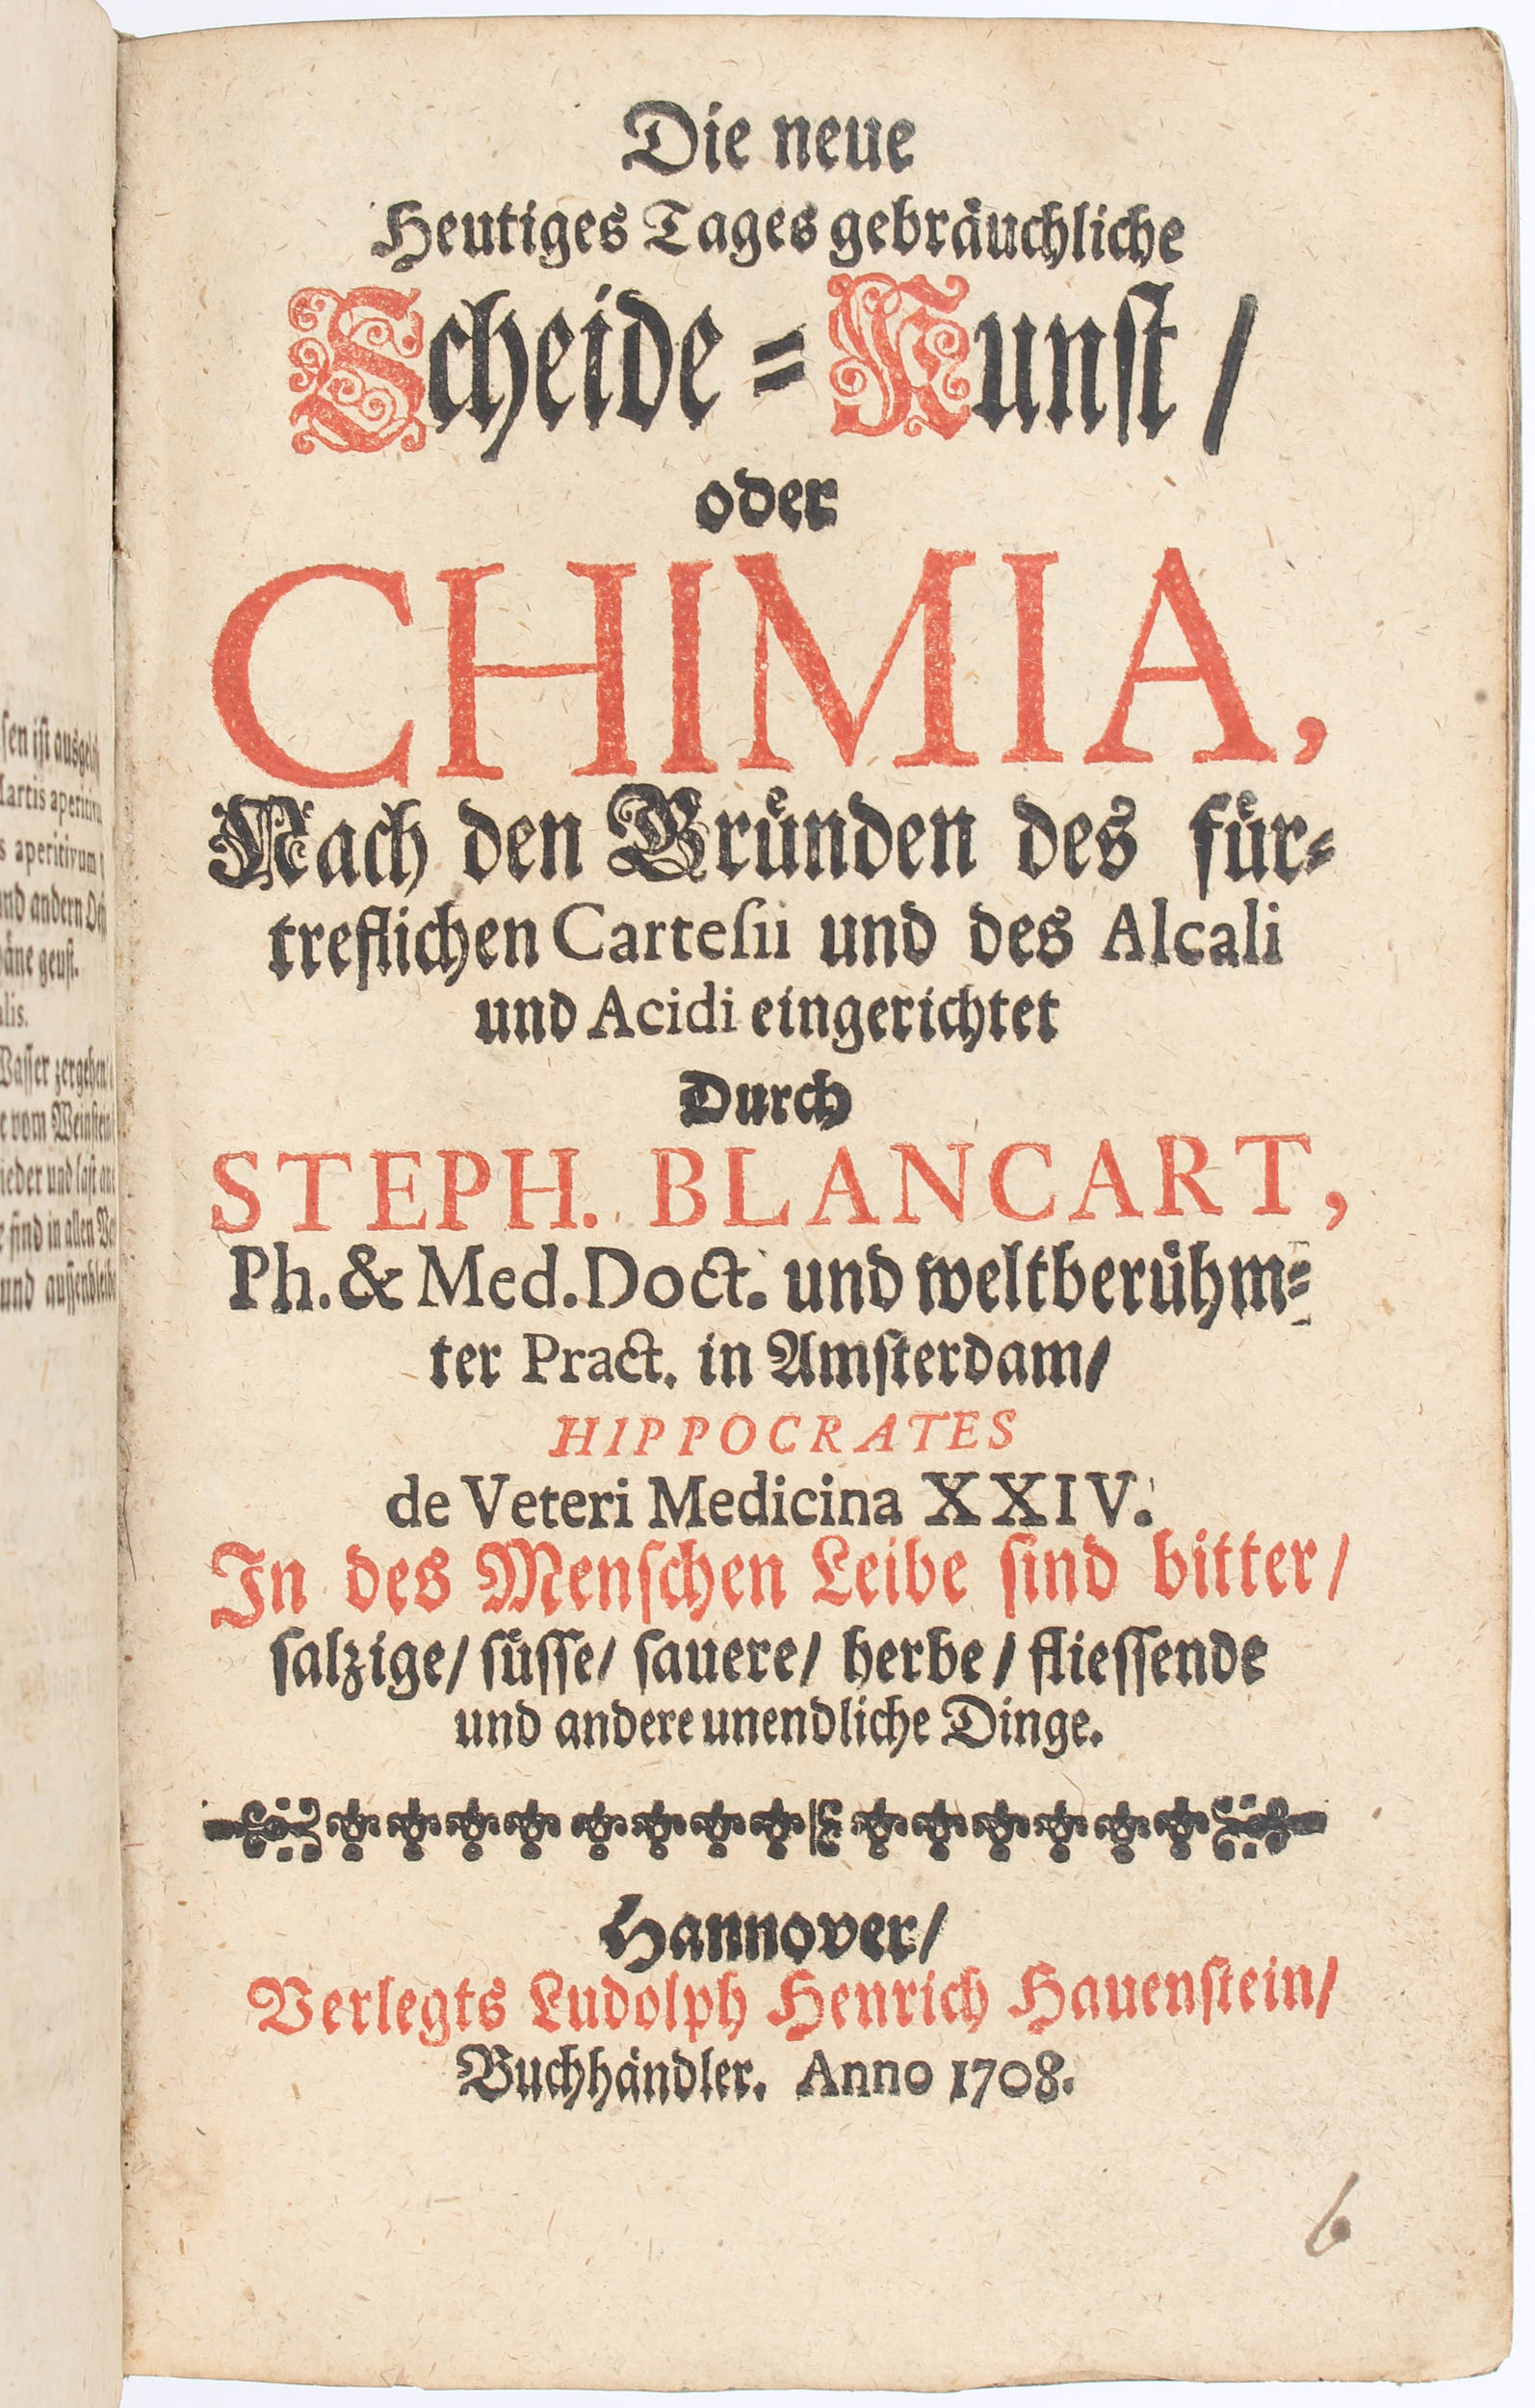 sen ist ausgelas
Martis aperitivu
s aperitivum
und andern
späne geust.
alis.
Wasser zergehen/
vom Weinstein
wieder und last
sind in allen
und aussenbleibe
Die neue
Heutiges Tages gebräuchliche
Scheide=Kunst/
oder
CHIMIA,
Nach den Gründen des für=
treflichen Cartesii und des Alcali
und Acidi eingerichtet
Durch
STEPH. BLANCART,
Ph. & Med. Doct. und weltberühm=
ter Pract. in Amsterdam/
HIPPOCRATES
de Veteri Medicina XXIV.
In des Menschen Leibe sind bitter/
salzige/ süsse/ sauere/ herbe/ fliessende
und andere unendliche Dinge.
Hannover/
Verlegts Ludolph Henrich Hauenstein/
Buchhändler. Anno 1708.
6